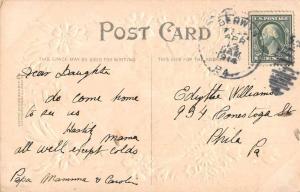 POST CARD
THIS SPACE MAY BE USED FOR WRITING
THIS SIDE IS FOR THE ADDRESS
APR
PA.
U.S. POSTAGE
Dear Daughter
do come home
to see us
Hastily mama
all well exept colds
Papa Mamma & Carolin
Edythe Williams
934 Conestoga St
Phila
Pa